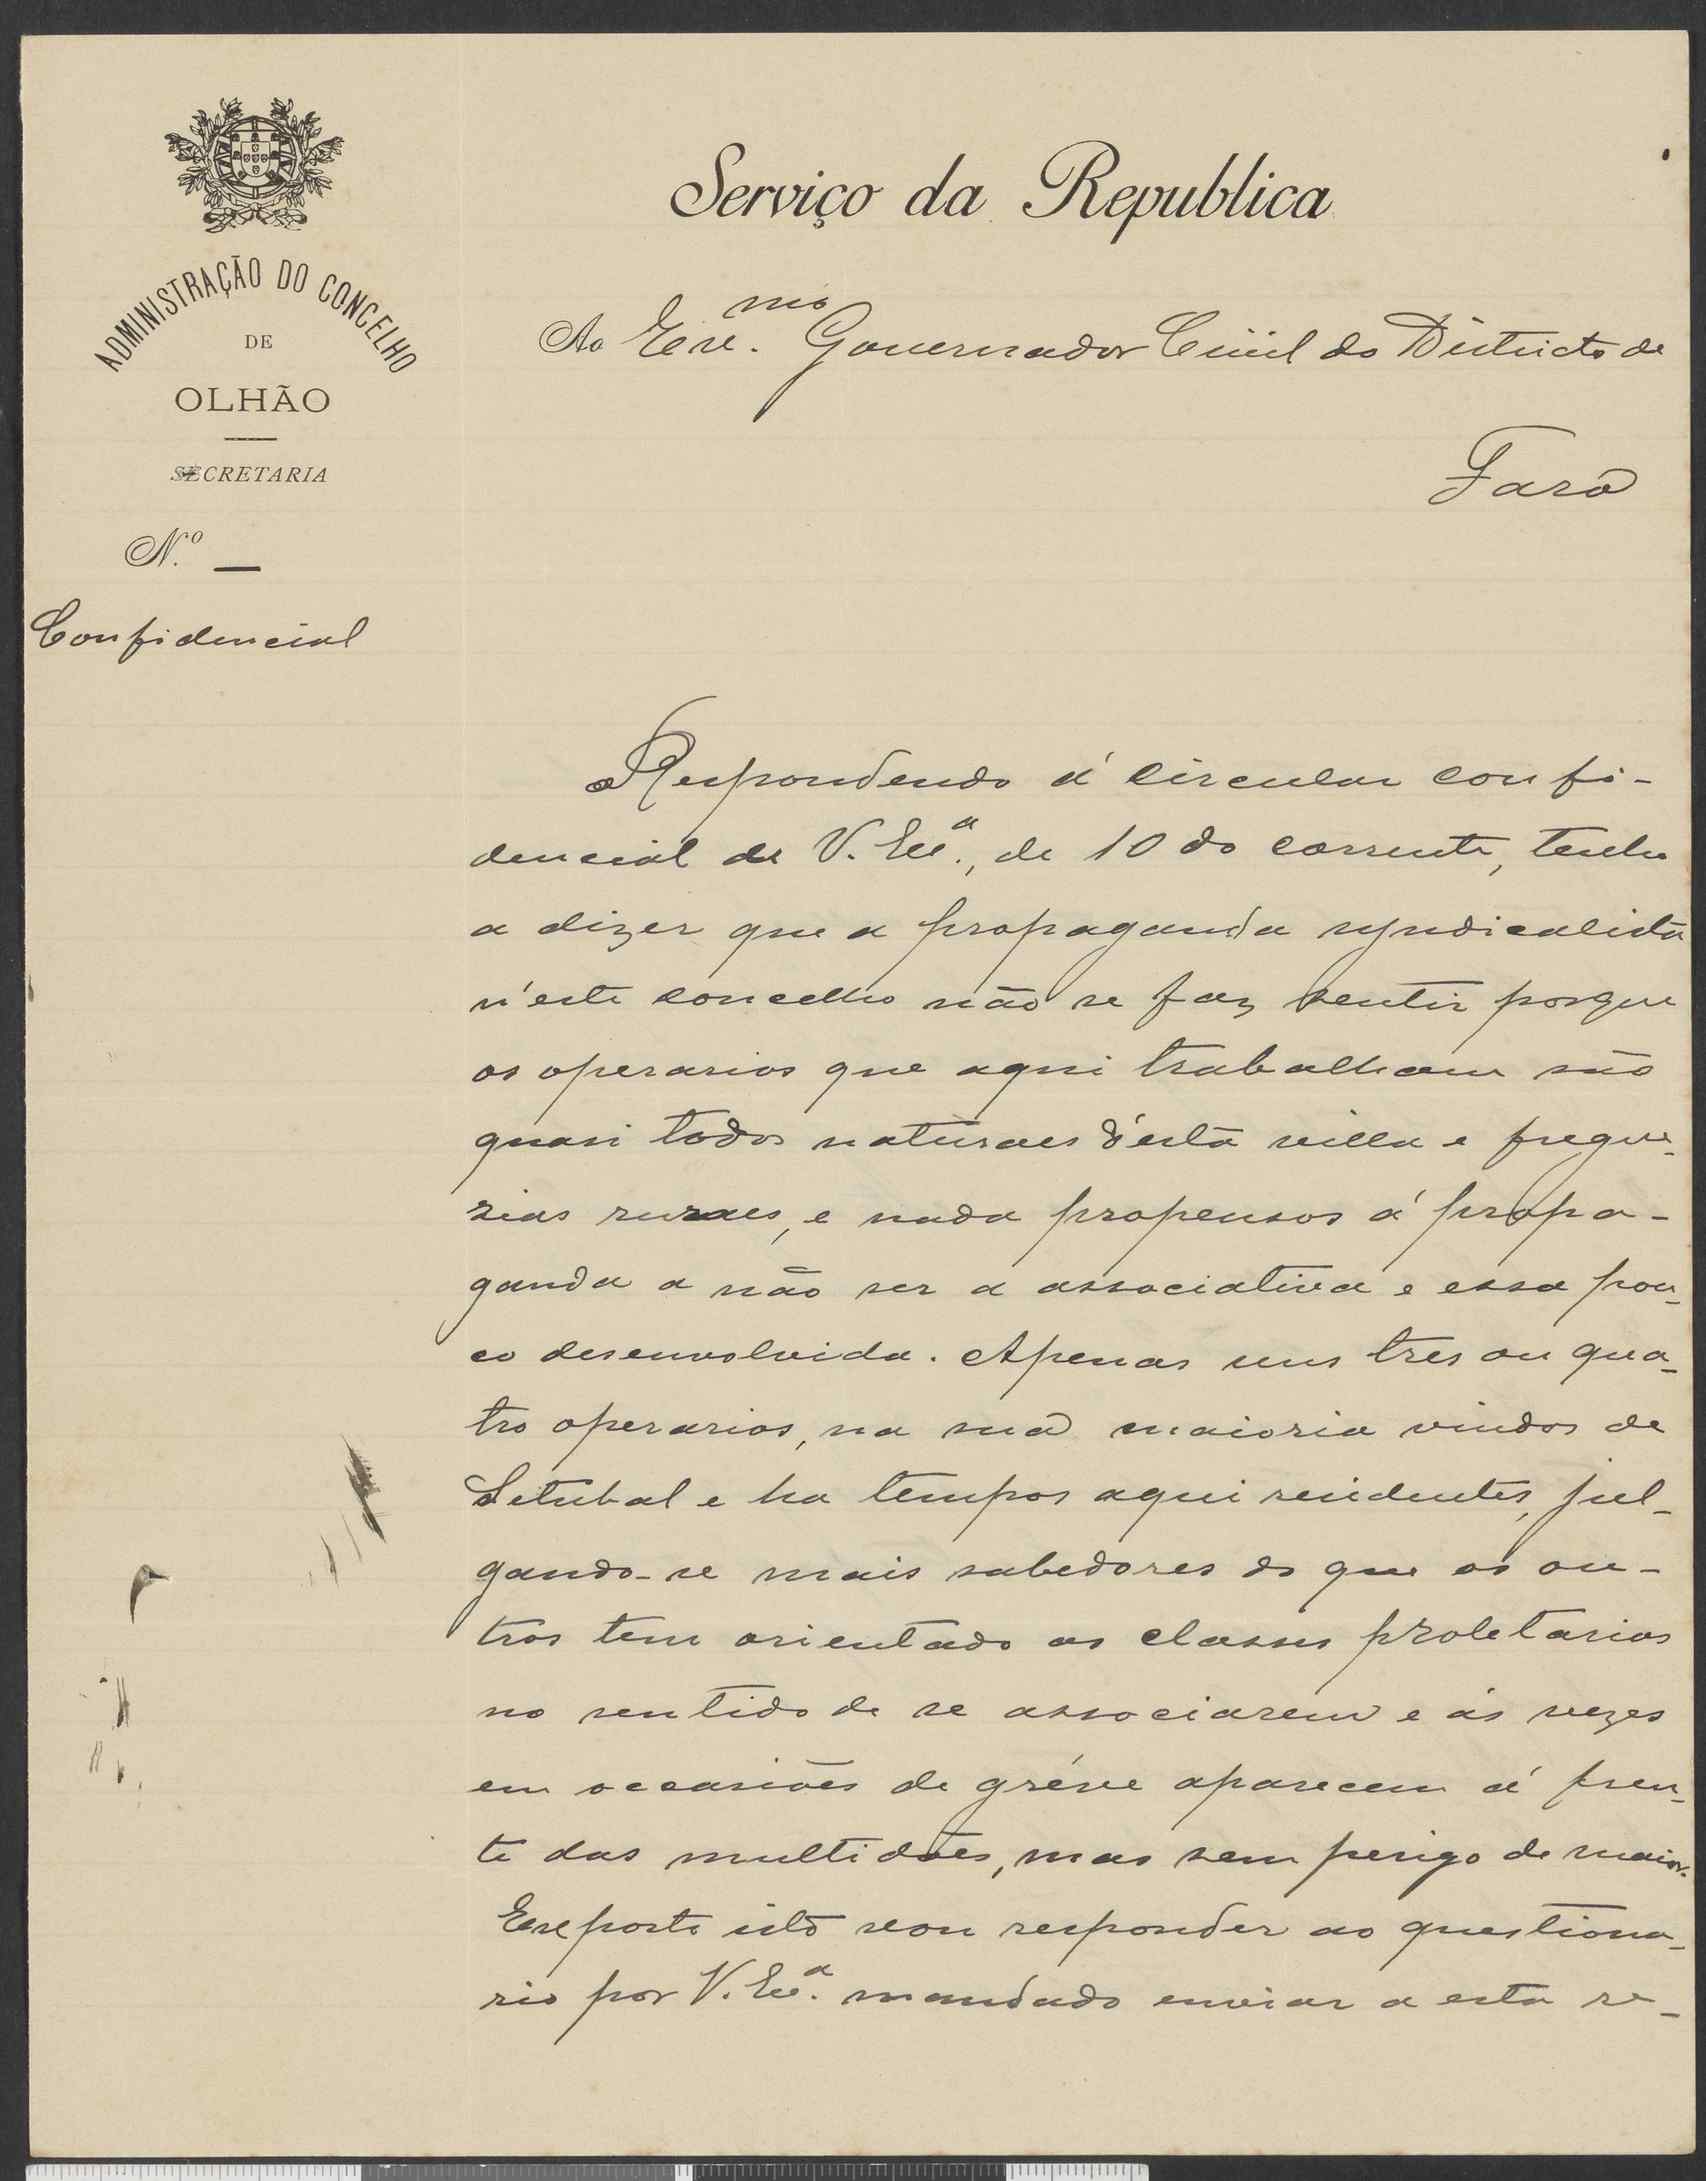 Serviço da Republica
ADMINISTRAÇÃO DO CONCELHO
DE
OLHÃO
SECRETARIA
N.º —
Confidencial
Ao Exe.mo Governador Civil do Districto de
Faro
Respondendo á circular confi-
dencial de V. Exª., de 10 do corrente, tenho
a dizer que a propaganda syndicalista
n'este concelho não se faz sentir porque
os operarios que aqui trabalham são
quasi todos naturaes d'esta villa e fregue-
sias ruraes, e nada propensos á propa-
ganda a não ser a associativa e essa pou-
co desenvolvida. Apenas uns tres ou qua-
tro operarios, na sua maioria vindos de
Setubal e ha tempos aqui residentes, jul-
gando-se mais sabedores do que os ou-
tros tem orientado as classes proletarias
no sentido de se associarem e ás vezes
em occasiões de gréve aparecem á fren-
te das multidões, mas sem perigo de maior.
Exposto isto vou responder ao questiona-
rio por V. Exª. mandado enviar a esta re-